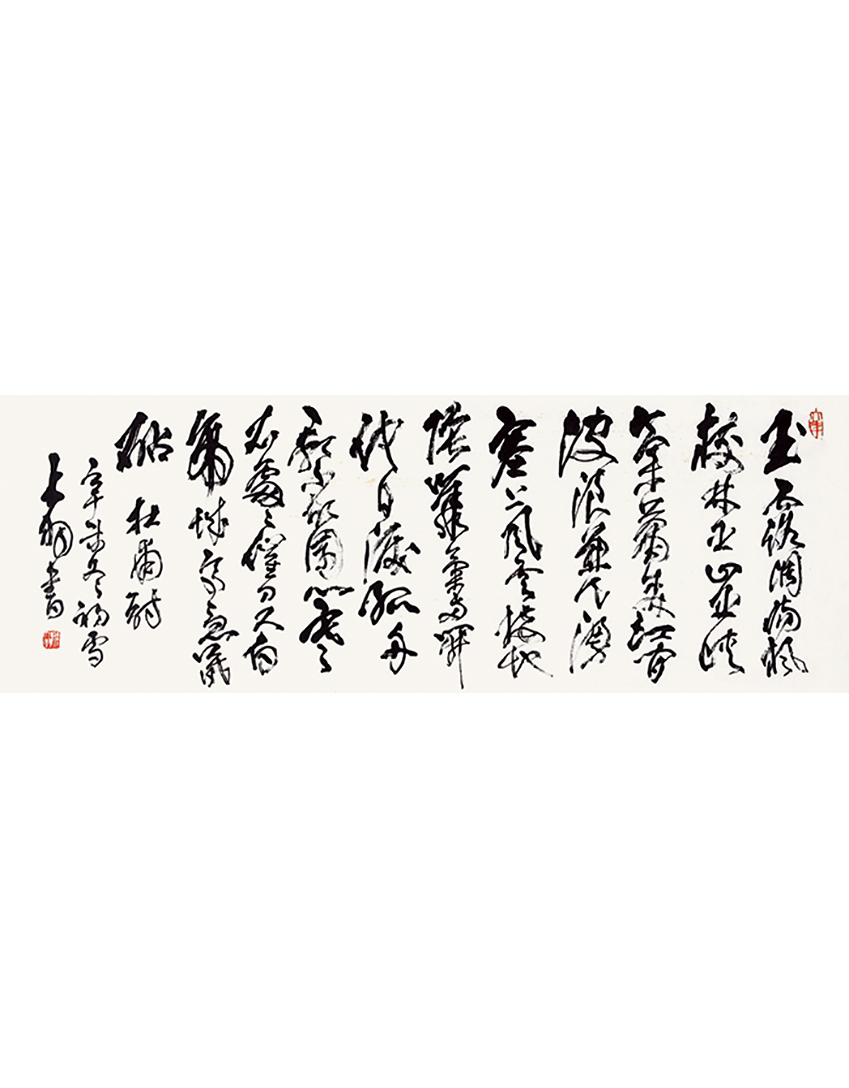 玉露凋傷楓
樹林巫山巫峽
氣蕭森江間
波浪兼天湧
塞上風雲接地
陰叢菊兩開
他日淚孤舟
一繫故園心寒
衣處々催刀尺白
帝城高急暮
砧 杜甫詩
辛未冬初雪
大羽書